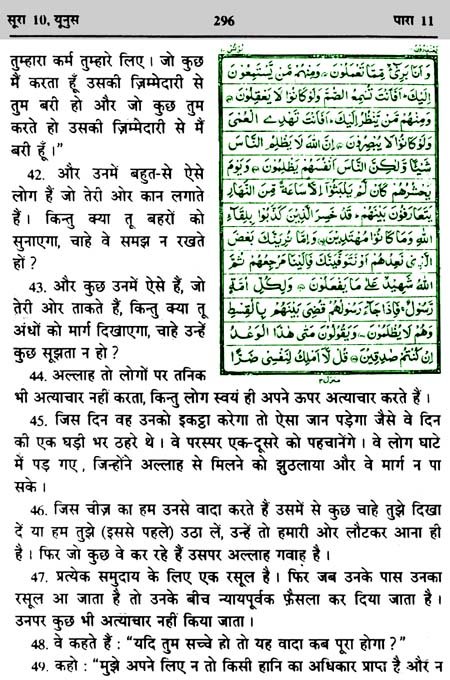 सूरा 10, यूनुस 296 पारा 11
तुम्हारा कर्म तुम्हारे लिए। जो कुछ
मैं करता हूँ उसकी ज़िम्मेदारी से
तुम बरी हो और जो कुछ तुम
करते हो उसकी ज़िम्मेदारी से मैं
बरी हूँ।”
42. और उनमें बहुत-से ऐसे
लोग हैं जो तेरी ओर कान लगाते
हैं। किन्तु क्या तू बहरों को
सुनाएगा, चाहे वे समझ न रखते
हों ?
43. और कुछ उनमें ऐसे हैं, जो
तेरी ओर ताकते हैं, किन्तु क्या तू
अंधों को मार्ग दिखाएगा, चाहे उन्हें
कुछ सूझता न हो ?
وَاَنَا بَرِیْٓءٌ مِّمَّا تَعْمَلُوْنَ وَمِنْهُمْ مَّنْ يَّسْتَمِعُوْنَ
اِلَيْكَ اَفَاَنْتَ تُسْمِعُ الصُّمَّ وَلَوْ كَانُوْا لَا يَعْقِلُوْنَ
وَمِنْهُمْ مَّنْ يَّنْظُرُ اِلَيْكَ اَفَاَنْتَ تَهْدِى الْعُمْىَ
وَلَوْ كَانُوْا لَا يُبْصِرُوْنَ اِنَّ اللّٰهَ لَا يَظْلِمُ النَّاسَ
شَيْئًا وَّلٰكِنَّ النَّاسَ اَنْفُسَهُمْ يَظْلِمُوْنَ وَيَوْمَ
يَحْشُرُهُمْ كَاَنْ لَّمْ يَلْبَثُوْٓا اِلَّا سَاعَةً مِّنَ النَّهَارِ
يَتَعَارَفُوْنَ بَيْنَهُمْ قَدْ خَسِرَ الَّذِيْنَ كَذَّبُوْا بِلِقَآءِ
اللّٰهِ وَمَا كَانُوْا مُهْتَدِيْنَ وَاِمَّا نُرِيَنَّكَ بَعْضَ
الَّذِىْ نَعِدُهُمْ اَوْ نَتَوَفَّيَنَّكَ فَاِلَيْنَا مَرْجِعُهُمْ ثُمَّ
اللّٰهُ شَهِيْدٌ عَلٰى مَا يَفْعَلُوْنَ وَلِكُلِّ اُمَّةٍ
رَّسُوْلٌ فَاِذَا جَآءَ رَسُوْلُهُمْ قُضِىَ بَيْنَهُمْ بِالْقِسْطِ
وَهُمْ لَا يُظْلَمُوْنَ وَيَقُوْلُوْنَ مَتٰى هٰذَا الْوَعْدُ
اِنْ كُنْتُمْ صٰدِقِيْنَ قُلْ لَّآ اَمْلِكُ لِنَفْسِىْ ضَرًّا
44. अल्लाह तो लोगों पर तनिक
भी अत्याचार नहीं करता, किन्तु लोग स्वयं ही अपने ऊपर अत्याचार करते हैं।
45. जिस दिन वह उनको इकट्ठा करेगा तो ऐसा जान पड़ेगा जैसे वे दिन
की एक घड़ी भर ठहरे थे। वे परस्पर एक-दूसरे को पहचानेंगे। वे लोग घाटे
में पड़ गए, जिन्होंने अल्लाह से मिलने को झुठलाया और वे मार्ग न पा
सके।
46. जिस चीज़ का हम उनसे वादा करते हैं उसमें से कुछ चाहे तुझे दिखा
दें या हम तुझे (इससे पहले) उठा लें, उन्हें तो हमारी ओर लौटकर आना ही
है। फिर जो कुछ वे कर रहे हैं उसपर अल्लाह गवाह है।
47. प्रत्येक समुदाय के लिए एक रसूल है। फिर जब उनके पास उनका
रसूल आ जाता है तो उनके बीच न्यायपूर्वक फ़ैसला कर दिया जाता है।
उनपर कुछ भी अत्याचार नहीं किया जाता।
48. वे कहते हैं : “यदि तुम सच्चे हो तो यह वादा कब पूरा होगा ?”
49. कहो : “मुझे अपने लिए न तो किसी हानि का अधिकार प्राप्त है और न